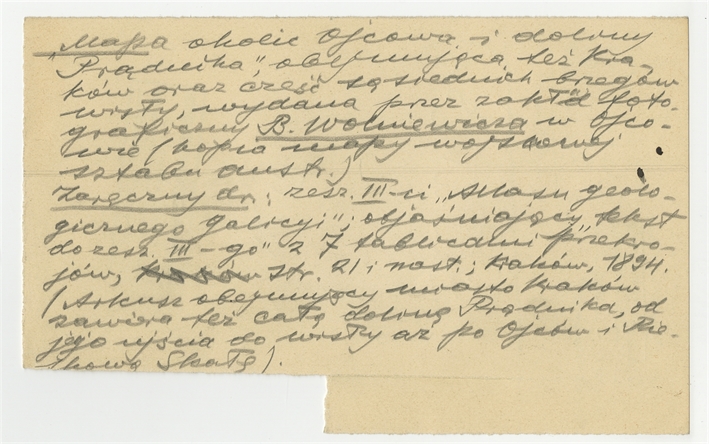 „Mapa okolic Ojcowa i doliny
Prądnika", obejmująca też Kra-
ków oraz część sąsiednich brzegów
wisły, wydana przez zakł–d foto-
graficzny B. Wolniewicza w Ojco-
wie (kopia mapy wojskowej
sztabu austr.)
Zaręczny dr.: zesz. III-ci „Atlasu geolo-
gicznego Galicyi"; objaśniający tekst
do zesz. III-go" z 7 tablicami przekro-
jów, Str. 21 i nast.; Kraków, 1894.
(Arkusz obejmujący miasto Kraków
zawiera też całą dolinę Prądnika, od
jego ujścia do wisły aż po Ojców i Pie-
skową Skałę).